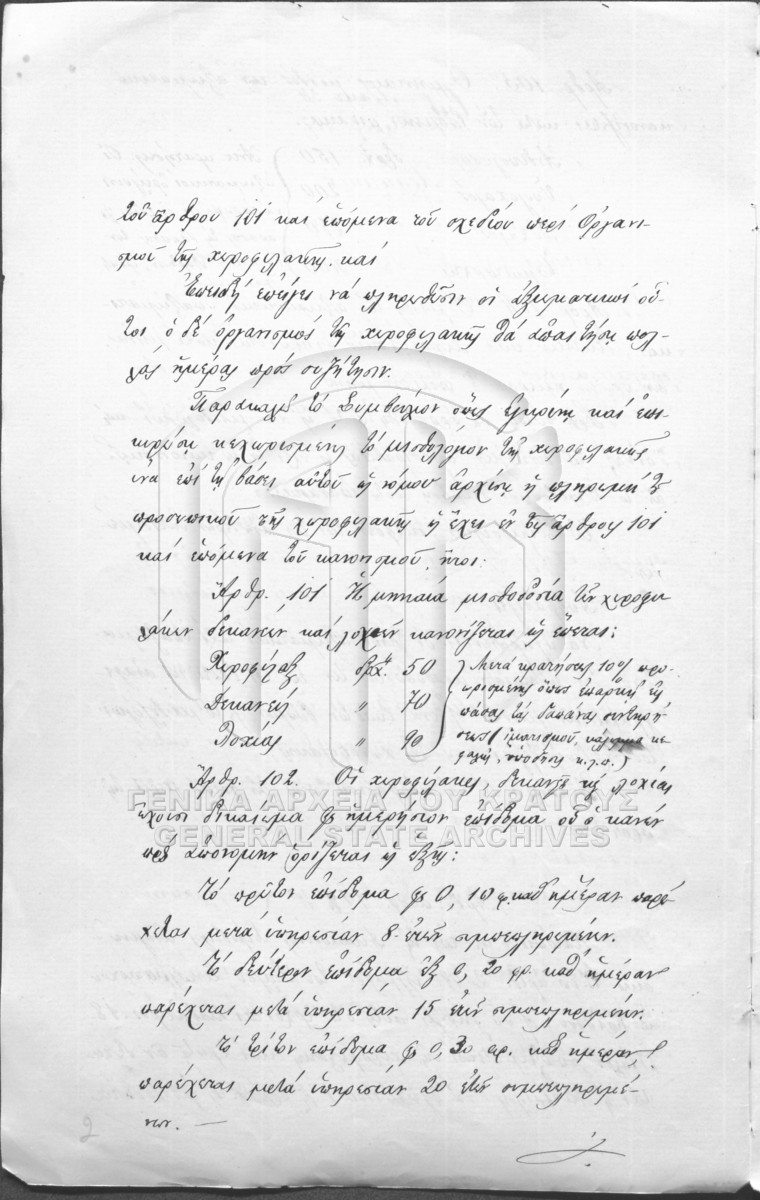 τοῦ ἄρθρου 101 καί ἑπόμενα τοῦ σχεδίου περί Ὀργανι-
σμοῦ τῆς χωροφυλακῆς. καί
Ἐπειδή ἐπείγει νά πληρωθῶσιν οἱ ἀξιωματικοί οὗ-
τοι ὁ δέ ὀργανισμός τῆς χωροφυλακῆς θά ἀπαιτήσῃ πολ-
λάς ἡμέρας πρός συζήτησιν.
Παρακαλῶ τό Συμβούλιον ὅπως ἐγκρίνῃ καί ἐπι-
κυρώσῃ κεχωρισμένως τό μισθολόγιον τῆς χωροφυλακῆς
ἵνα ἐπί τῇ βάσει αὐτοῦ ὡς νόμου ἀρχίσῃ ἡ πληρωμή τοῦ
προσωπικοῦ τῆς χωροφυλακῆς ὡς ἔχει ἐν τοῖς ἄρθροις 101
καί ἑπόμενα τοῦ κανονισμοῦ, ἤτοι:
Ἄρθρ. 101 Ἡ μηνιαία μισθοδοσία τῶν χωροφυ-
λάκων δεκανέων καί λοχιῶν κανονίζεται ὡς ἕπεται:
Χωροφύλαξ δρχ. 50
Δεκανεύς " 70
Λοχίας " 90
Μετά κρατήσεως 10% προ-
ωρισμένης ὅπως ἐπαρκῇ εἰς
πάσας τάς δαπάνας συντηρή
σεως (ἱματισμοῦ, κάλυμμα κε
φαλῆς, ὑπόδησις κ.λ.π.)
Ἄρθρ. 102. Οἱ χωροφύλακες, δεκανεῖς καί λοχίαι
ἔχουσι δικαίωμα εἰς ἡμερήσιον ἐπίδομα οὗ ὁ κανών
πρός ἀπονομήν ὁρίζεται ὡς ἑξῆς:
Τό πρῶτον ἐπίδομα ἐξ 0,10 φρ. καθ' ἡμέραν παρέ-
χεται μετά ὑπηρεσίαν 8 ἐτῶν συμπεπληρωμένων.
Τό δεύτερον ἐπίδομα ἐξ 0,20 φρ. καθ' ἡμέραν
παρέχεται μετά ὑπηρεσίαν 15 ἐτῶν συμπεπληρωμένων.
Τό τρίτον ἐπίδομα ἐξ 0,30 φρ. καθ' ἡμέραν
παρέχεται μετά ὑπηρεσίαν 20 ἐτῶν συμπεπληρωμέ-
νων. —
2
ΓΕΝΙΚΑ ΑΡΧΕΙΑ ΤΟΥ ΚΡΑΤΟΥΣ
GENERAL STATE ARCHIVES